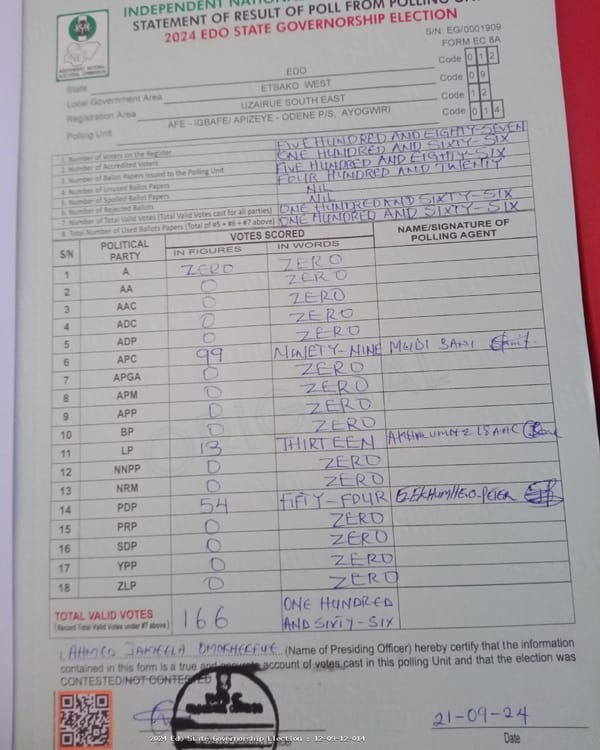 INDEPENDENT NATIONAL
STATEMENT OF RESULT OF POLL FROM POLLING
2024 EDO STATE GOVERNORSHIP ELECTION
S/N: EG/0001909
FORM EC 8A
INDEPENDENT NATIONAL ELECTORAL COMMISSION
State EDO Code 0 1 2
Local Government Area ETSAKO WEST Code 0 9
Registration Area UZAIRUE SOUTH EAST Code 1 2
Polling Unit AFE - IGBAFE/ APIZEYE - ODENE P/S, AYOGWIRI Code 0 1 4
1. Number of Voters on the Register FIVE HUNDRED AND EIGHTY-SEVEN
2. Number of Accredited Voters ONE HUNDRED AND SIXTY-SIX
3. Number of Ballot Papers Issued to the Polling Unit FIVE HUNDRED AND EIGHTY-SIX
4. Number of Unused Ballot Papers FOUR HUNDRED AND TWENTY
5. Number of Spoiled Ballot Papers NIL
6. Number of Rejected Ballots NIL
7. Number of Total Valid Votes (Total Valid Votes cast for all parties) ONE HUNDRED AND SIXTY-SIX
8. Total Number of Used Ballots Papers (Total of #5 + #6 + #7 above) ONE HUNDRED AND SIXTY-SIX
S/N POLITICAL PARTY VOTES SCORED NAME/SIGNATURE OF POLLING AGENT
IN FIGURES IN WORDS
1 A ZERO ZERO
2 AA 0 ZERO
3 AAC 0 ZERO
4 ADC 0 ZERO
5 ADP 0 ZERO
6 APC 99 NINETY-NINE MUDI SANI
7 APGA 0 ZERO
8 APM 0 ZERO
9 APP 0 ZERO
10 BP 0 ZERO
11 LP 13 THIRTEEN ISAAC
12 NNPP 0 ZERO
13 NRM 0 ZERO
14 PDP 54 FIFTY-FOUR PETER
15 PRP 0 ZERO
16 SDP 0 ZERO
17 YPP 0 ZERO
18 ZLP 0 ZERO
TOTAL VALID VOTES 166 ONE HUNDRED
(Record Total Valid Votes under #7 above) AND SIXTY-SIX
I, AHMED JAMEELA (Name of Presiding Officer) hereby certify that the information
contained in this form is a true and accurate account of votes cast in this polling Unit and that the election was
CONTESTED/NOT CONTESTED
21-09-24
Date
2024 Edo State Governorship Election : 12-09-12-014